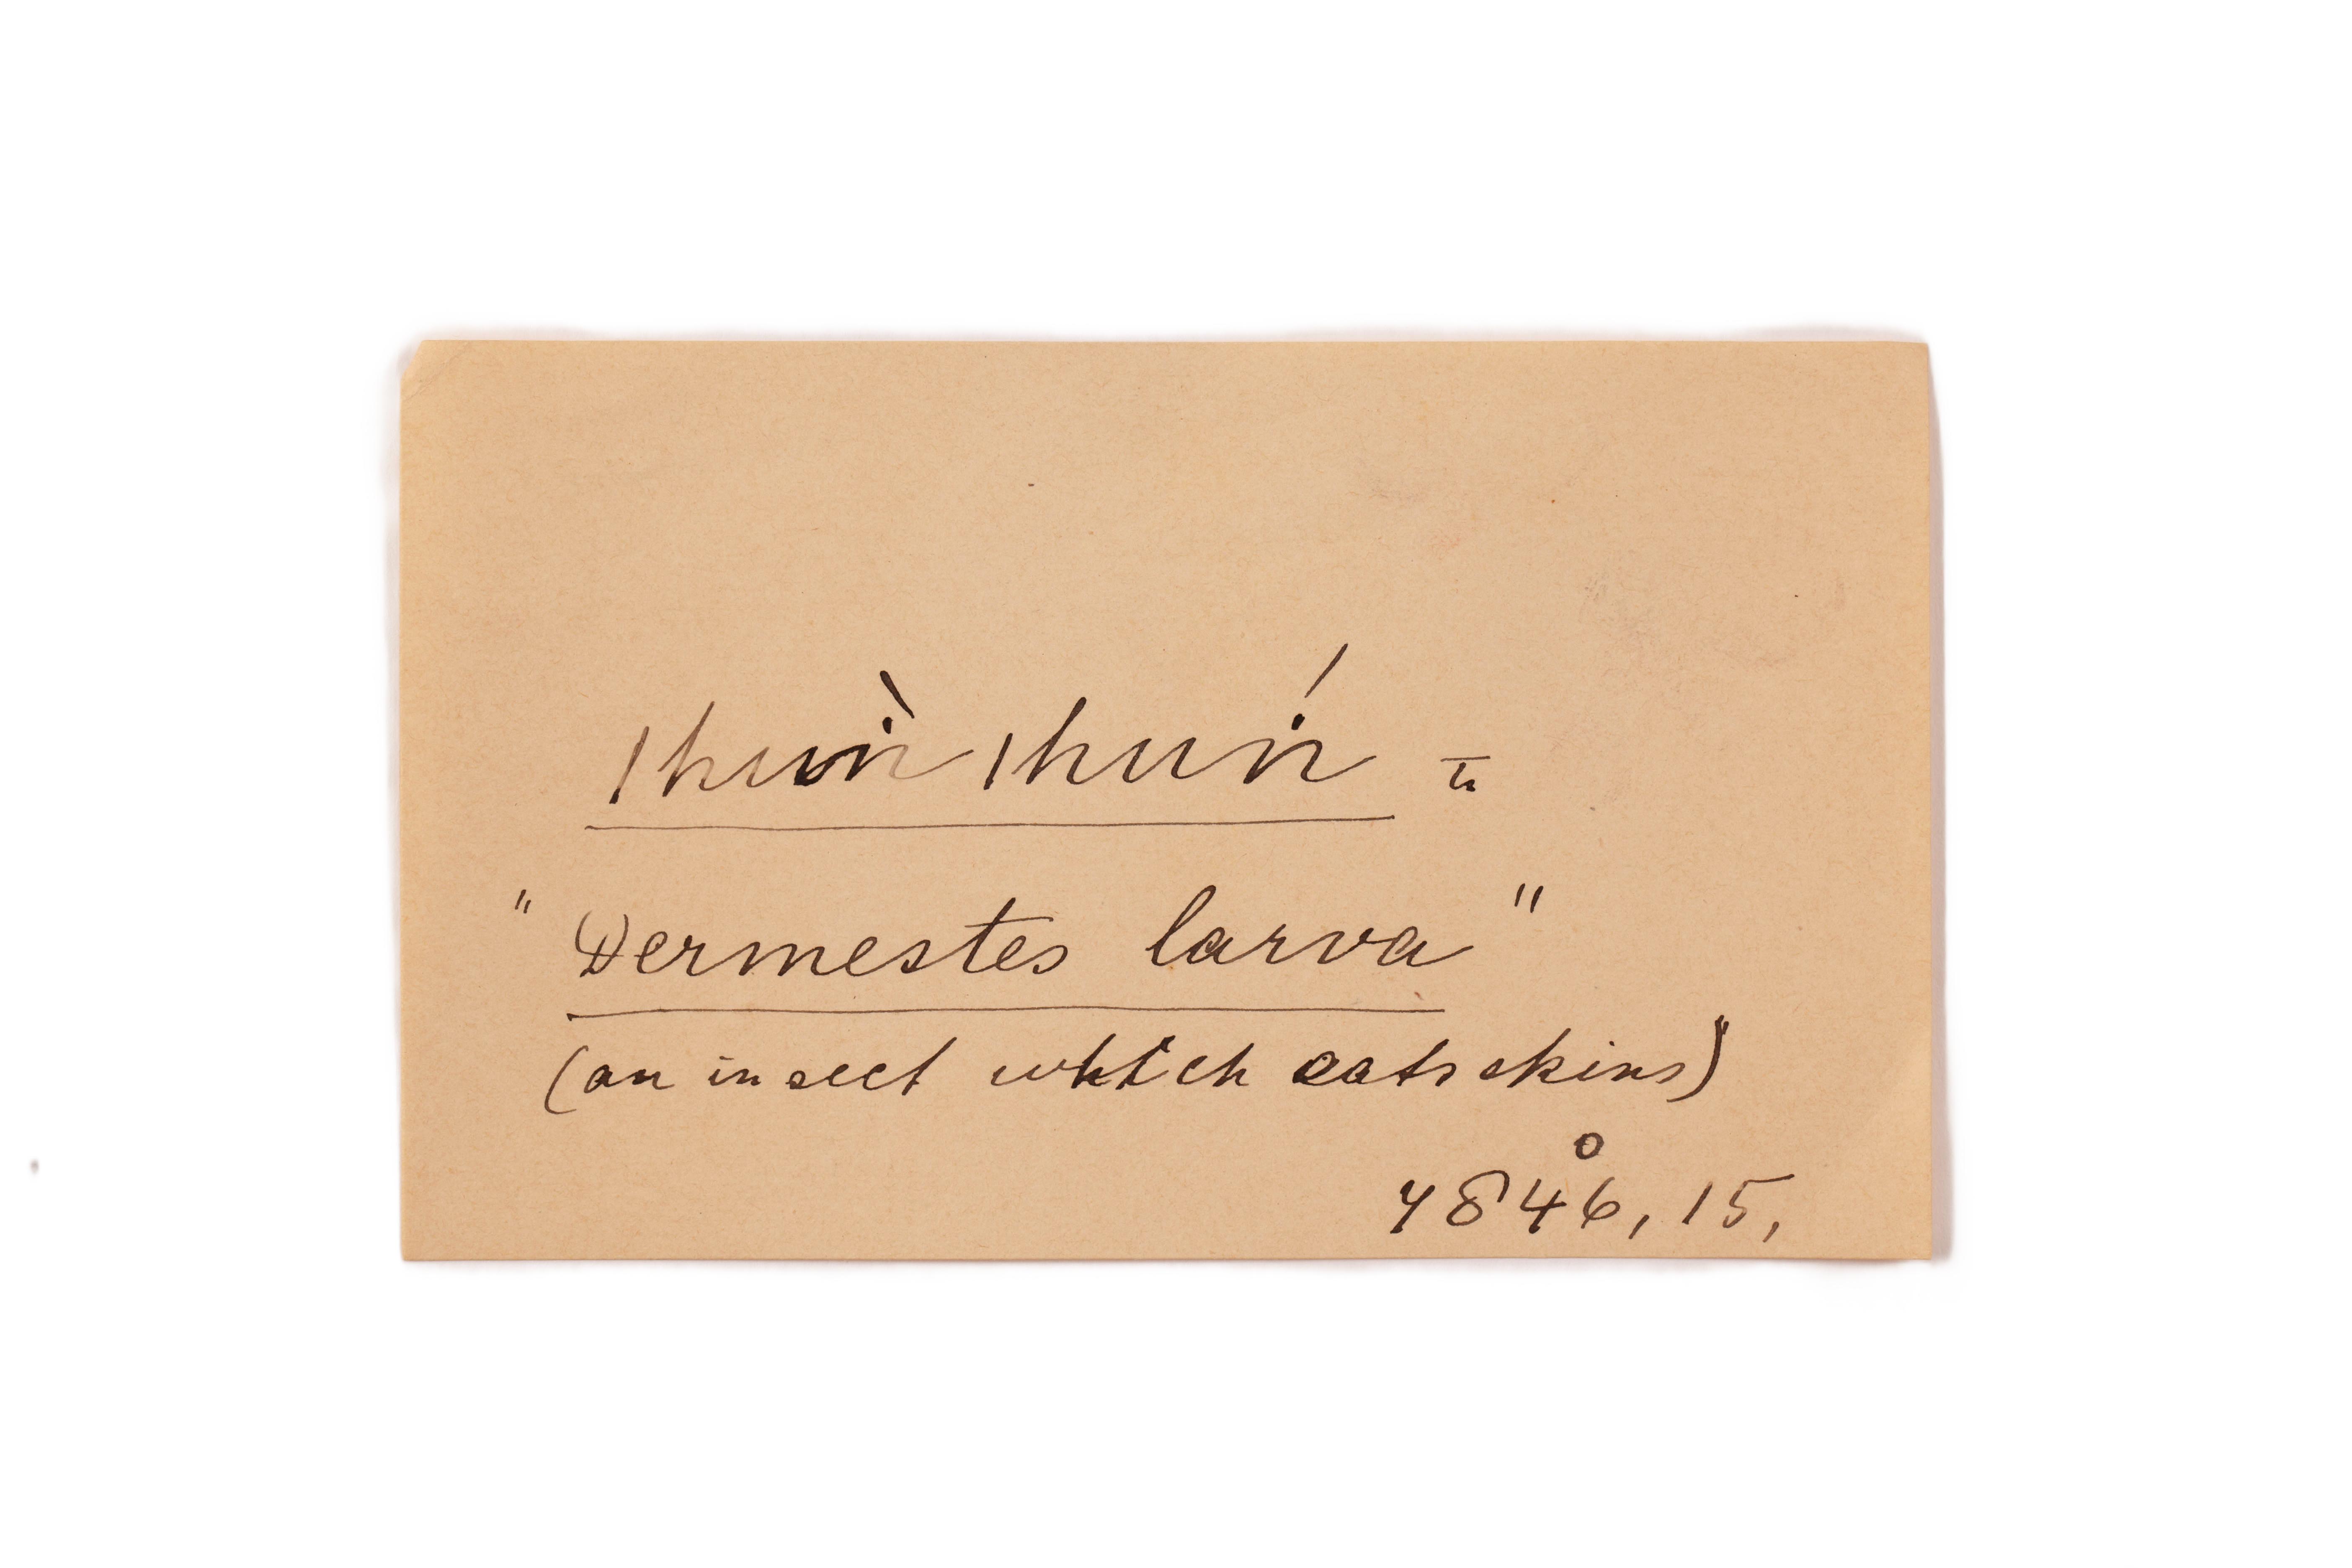 ǀhuṅ̀ ǀhuṅ́ =
" Dermestes larva "
(an insect which eats skins)
o
4846, 15,